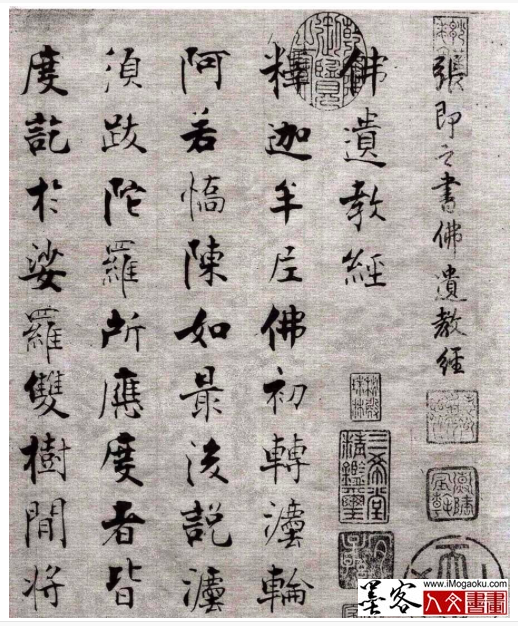 張即之書佛遺教經
佛遺教經
釋迦牟尼佛初轉灋輪
阿若憍陳如最後說灋
須跋陀羅所應度者皆
度訖於娑羅雙樹間將
三希堂精鑑璽
墨客
www.iMogaoku.com
人文書畫